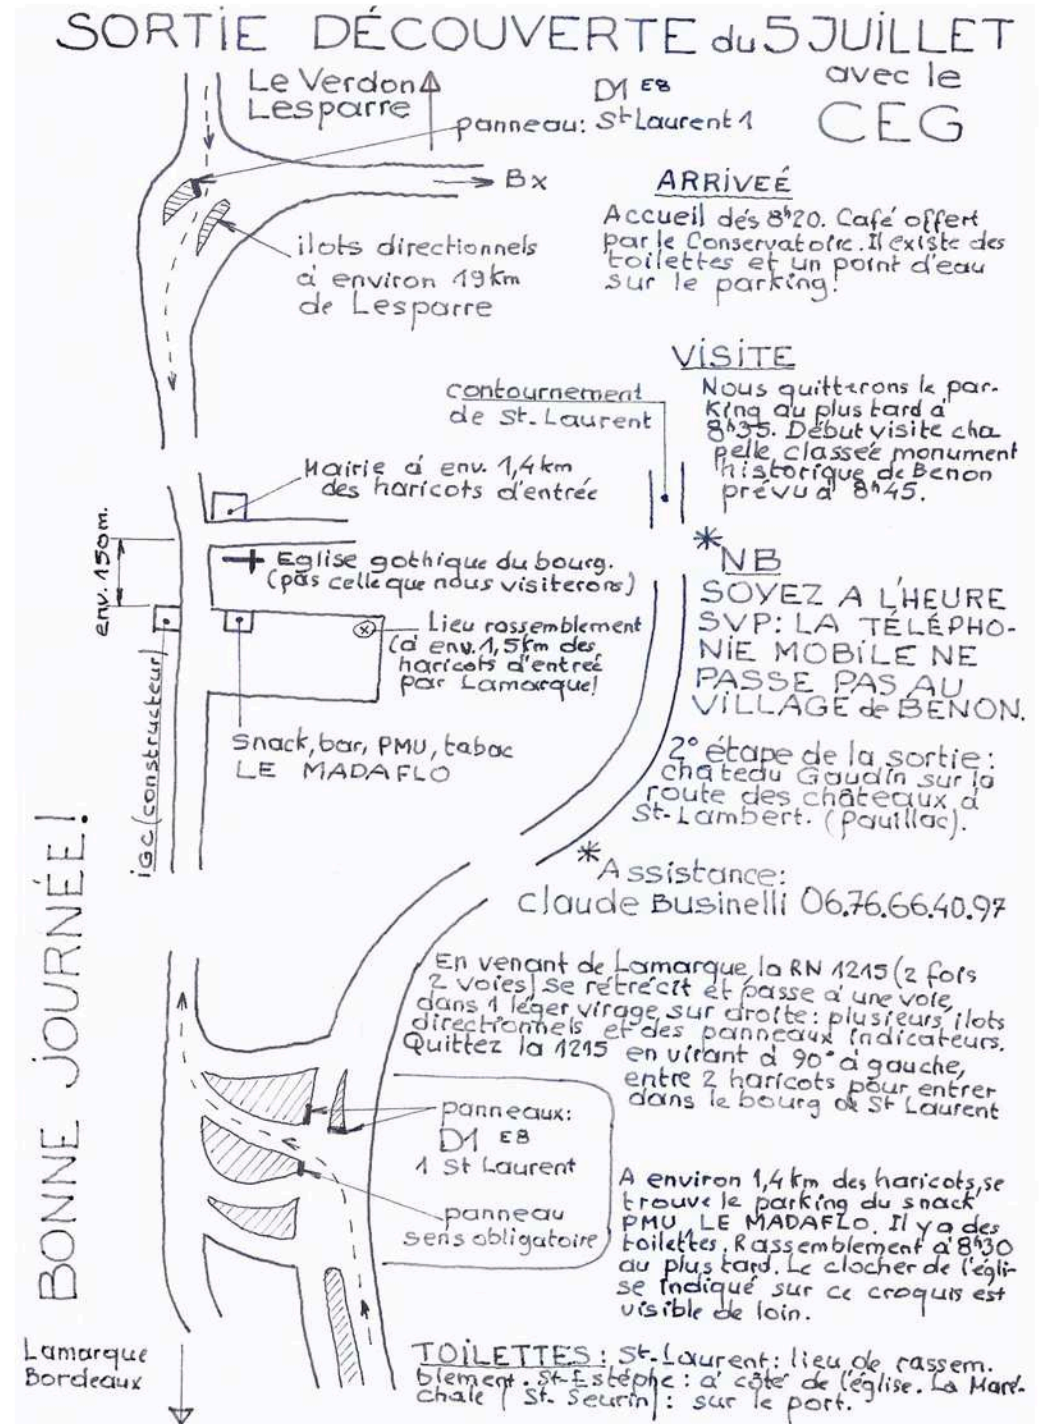 SORTIE DÉCOUVERTE du 5 JUILLET
avec le
CEG
Le Verdon
Lesparre
D1 E8
panneau: St Laurent 1
Bx
ilots directionnels
à environ 19km
de Lesparre
ARRIVEÉ
Accueil dés 8h20. Café offert
par le Conservatoire. Il existe des
toilettes et un point d'eau
sur le parking!
VISITE
Nous quitterons le par-
king au plus tard à
8h35. Début visite cha
pelle classée monument
historique de Benon
prévu à 8h45.
contournement
de St. Laurent
Mairie à env. 1,4 km
des haricots d'entrée
env. 150m.
Eglise gothique du bourg.
(pas celle que nous visiterons)
Lieu rassemblement
(à env. 1,5km des
haricots d'entreé
par Lamarque!
iGC (constructeur)
Snack, bar, PMU, tabac
LE MADAFLO
* NB
SOYEZ A L'HEURE
SVP: LA TÉLÉPHO-
NIE MOBILE NE
PASSE PAS AU
VILLAGE de BENON.
2° étape de la sortie:
château Gaudin sur la
route des châteaux à
St-Lambert. (Pauillac).
* Assistance:
Claude Businelli 06.76.66.40.97
BONNE JOURNÉE!
En venant de Lamarque, la RN 1215 (2 fois
2 voies) se rétrécit et passe à une voie,
dans 1 léger virage sur droite: plusieurs ilots
directionnels et des panneaux indicateurs.
Quittez la 1215 en virant à 90° à gauche,
entre 2 haricots pour entrer
dans le bourg de St Laurent
panneaux:
D1 E8
1 St Laurent
panneau
sens obligatoire
A environ 1,4 km des haricots, se
trouve le parking du snack
PMU LE MADAFLO. Il y a des
toilettes. Rassemblement à 8h30
au plus tard. Le clocher de l'égli-
se indiqué sur ce croquis est
visible de loin.
Lamarque
Bordeaux
TOILETTES: St-Laurent: lieu de rassem.
blement. St-Estéphe: à côté de l'église. La Maré-
chale (St. Seurin): sur le port.